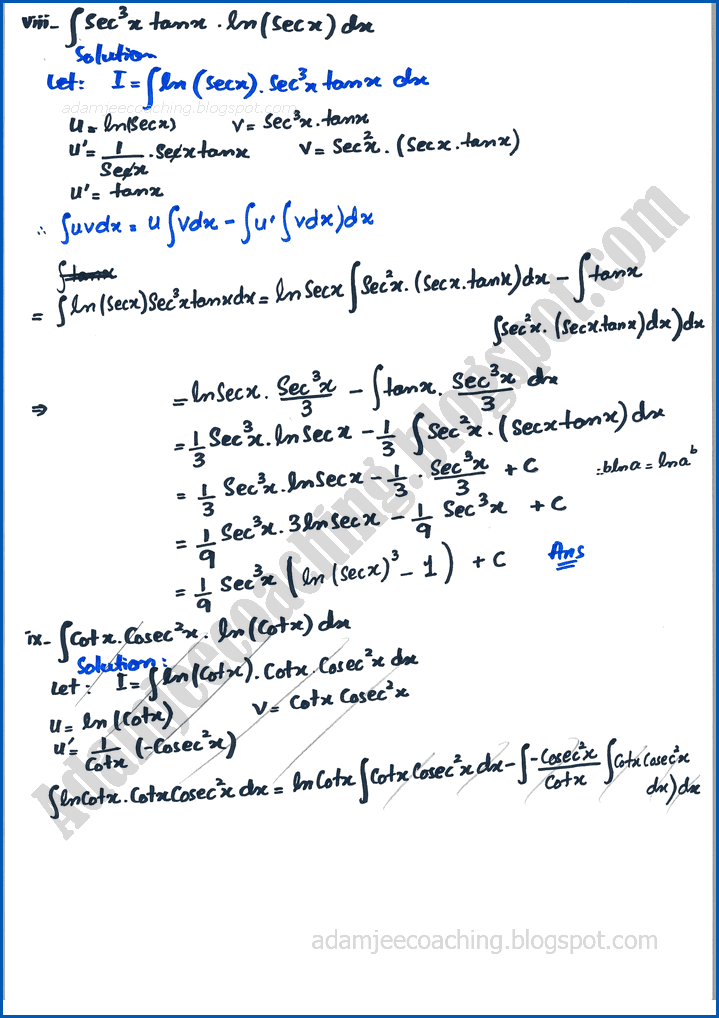 viii- ∫Sec³x tanx . ln(Secx) dx
Solution
Let: I = ∫ln(Secx). Sec³x tanx dx
adamjeecoaching.blogspot.com
u = ln(Secx) v = Sec³x . tanx
u' = 1/Secx . Secx tanx v = Sec²x . (Secx . tanx)
u' = tanx
∴ ∫uvdx = u∫vdx - ∫u' ∫vdx)dx
∫tanx
= ∫ln(Secx)Sec³x tanx dx = lnSecx ∫Sec²x . (Secx . tanx)dx - ∫tanx
∫Sec²x . (Secx . tanx)dx)dx
⇒ = lnSecx . Sec³x/3 - ∫tanx . Sec³x/3 dx
= 1/3 Sec³x . lnSecx - 1/3 ∫Sec²x . (Secx tanx) dx
= 1/3 Sec³x . lnSecx - 1/3 . Sec³x/3 + C ∴ blna = lna^b
= 1/9 Sec³x . 3lnSecx - 1/9 Sec³x + C
= 1/9 Sec³x (ln(Secx)³ - 1) + C Ans
ix- ∫Cotx . Cosec²x . ln(Cotx) dx
Solution:
Let: I = ∫ln(Cotx). Cotx . Cosec²x dx
u = ln(Cotx) v = Cotx Cosec²x
u' = 1/Cotx (-Cosec²x)
∫lnCotx . CotxCosec²x dx = lnCotx ∫CotxCosec²x dx - ∫-Cosec²x/Cotx ∫CotxCosec²x
dx)dx
Adamjeecoaching.blogspot.com
adamjeecoaching.blogspot.com